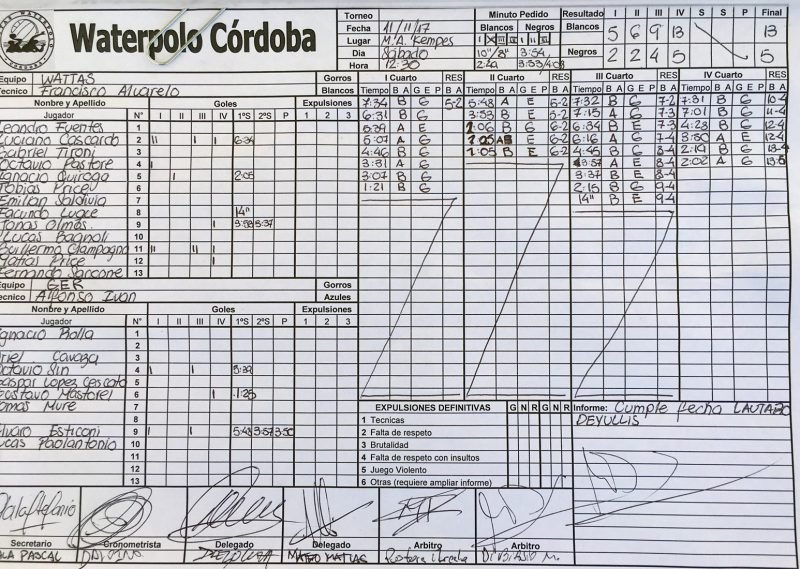 Waterpolo Córdoba
Torneo
Fecha 11/11/17
Lugar M.A. Kempes
Dia Sábado
Hora 12:30
Minuto Pedido
Blancos Negros
I II III IV I II III IV
10" 8" 3:54
Resultado I II III IV S S P Final
Blancos 5 6 9 13 13
Negros 2 2 4 5 5
Equipo WATTAS Gorros
Tecnico Francisco Alvarelo Blancos
Nombre y Apellido Goles Expulsiones
Jugador N° I II III IV 1°S 2°S P 1 2 3
Leandro Fuentes 1
Luciano Cascardo 2 II I 6:34
Gabriel Tironi 3
Octavio Pastore 4
Ignacio Quiroga 5 I 2:05
Tobias Price 6
Emilian Saldivia 7
Facundo Lugce 8 14"
Jonas Olmos 9 I 3:37
Lucas Bagnoli 10
Guillermo Ciampagna 11 II II I
Matias Price 12 I
Fernando Sarcone 13
I Cuarto RES
Tiempo B A G E P B A
7:34 B G 5-2
6:31 B G
5:39 A E
5:07 A G
4:46 B G
3:31 A G
3:07 B G
1:21 B G
II Cuarto RES
Tiempo B A G E P B A
5:48 A E 6-2
3:53 B E 6-2
1:06 B G 6-2
B E 6-2
1:05 B E 6-2
III Cuarto RES
Tiempo B A G E P B A
7:32 B G 7-2
7:15 A G 7-3
6:34 B E 7-3
6:16 A G 7-4
4:45 B G 8-4
3:57 A E 8-4
3:37 B E 8-4
2:15 B G 9-4
14" B E 9-4
IV Cuarto RES
Tiempo B A G E P B A
7:31 B G 10-4
7:01 B G 11-4
4:23 B G 12-4
3:50 A E 12-4
2:19 B G 13-4
2:02 A G 13-5
Equipo GER Gorros
Tecnico Alfonso Ivan Azules
Nombre y Apellido Goles Expulsiones
Jugador N° I II III IV 1°S 2°S P 1 2 3
Ignacio Rolla 1
2
Uriel Cavaza 3
Octavio Sin 4 I I 5:39
Gaspar Lopez Cescato 5
Gustavo Mastorel 6 I 1:25
Tomas Mure 7
8
Alvaro Esticoni 9 I I 5:48 3:57 3:50
Lucas Paolantonio 10
11
12
13
EXPULSIONES DEFINITIVAS G N R G N R
1 Tecnicas
2 Falta de respeto
3 Brutalidad
4 Falta de respeto con insultos
5 Juego Violento
6 Otras (requiere ampliar informe)
Informe: Cumple fecha LAUTARO
DEYULLIS
Secretario Cronometrista Delegado Delegado Arbitro Arbitro
PASCAL MATEO MATIAS